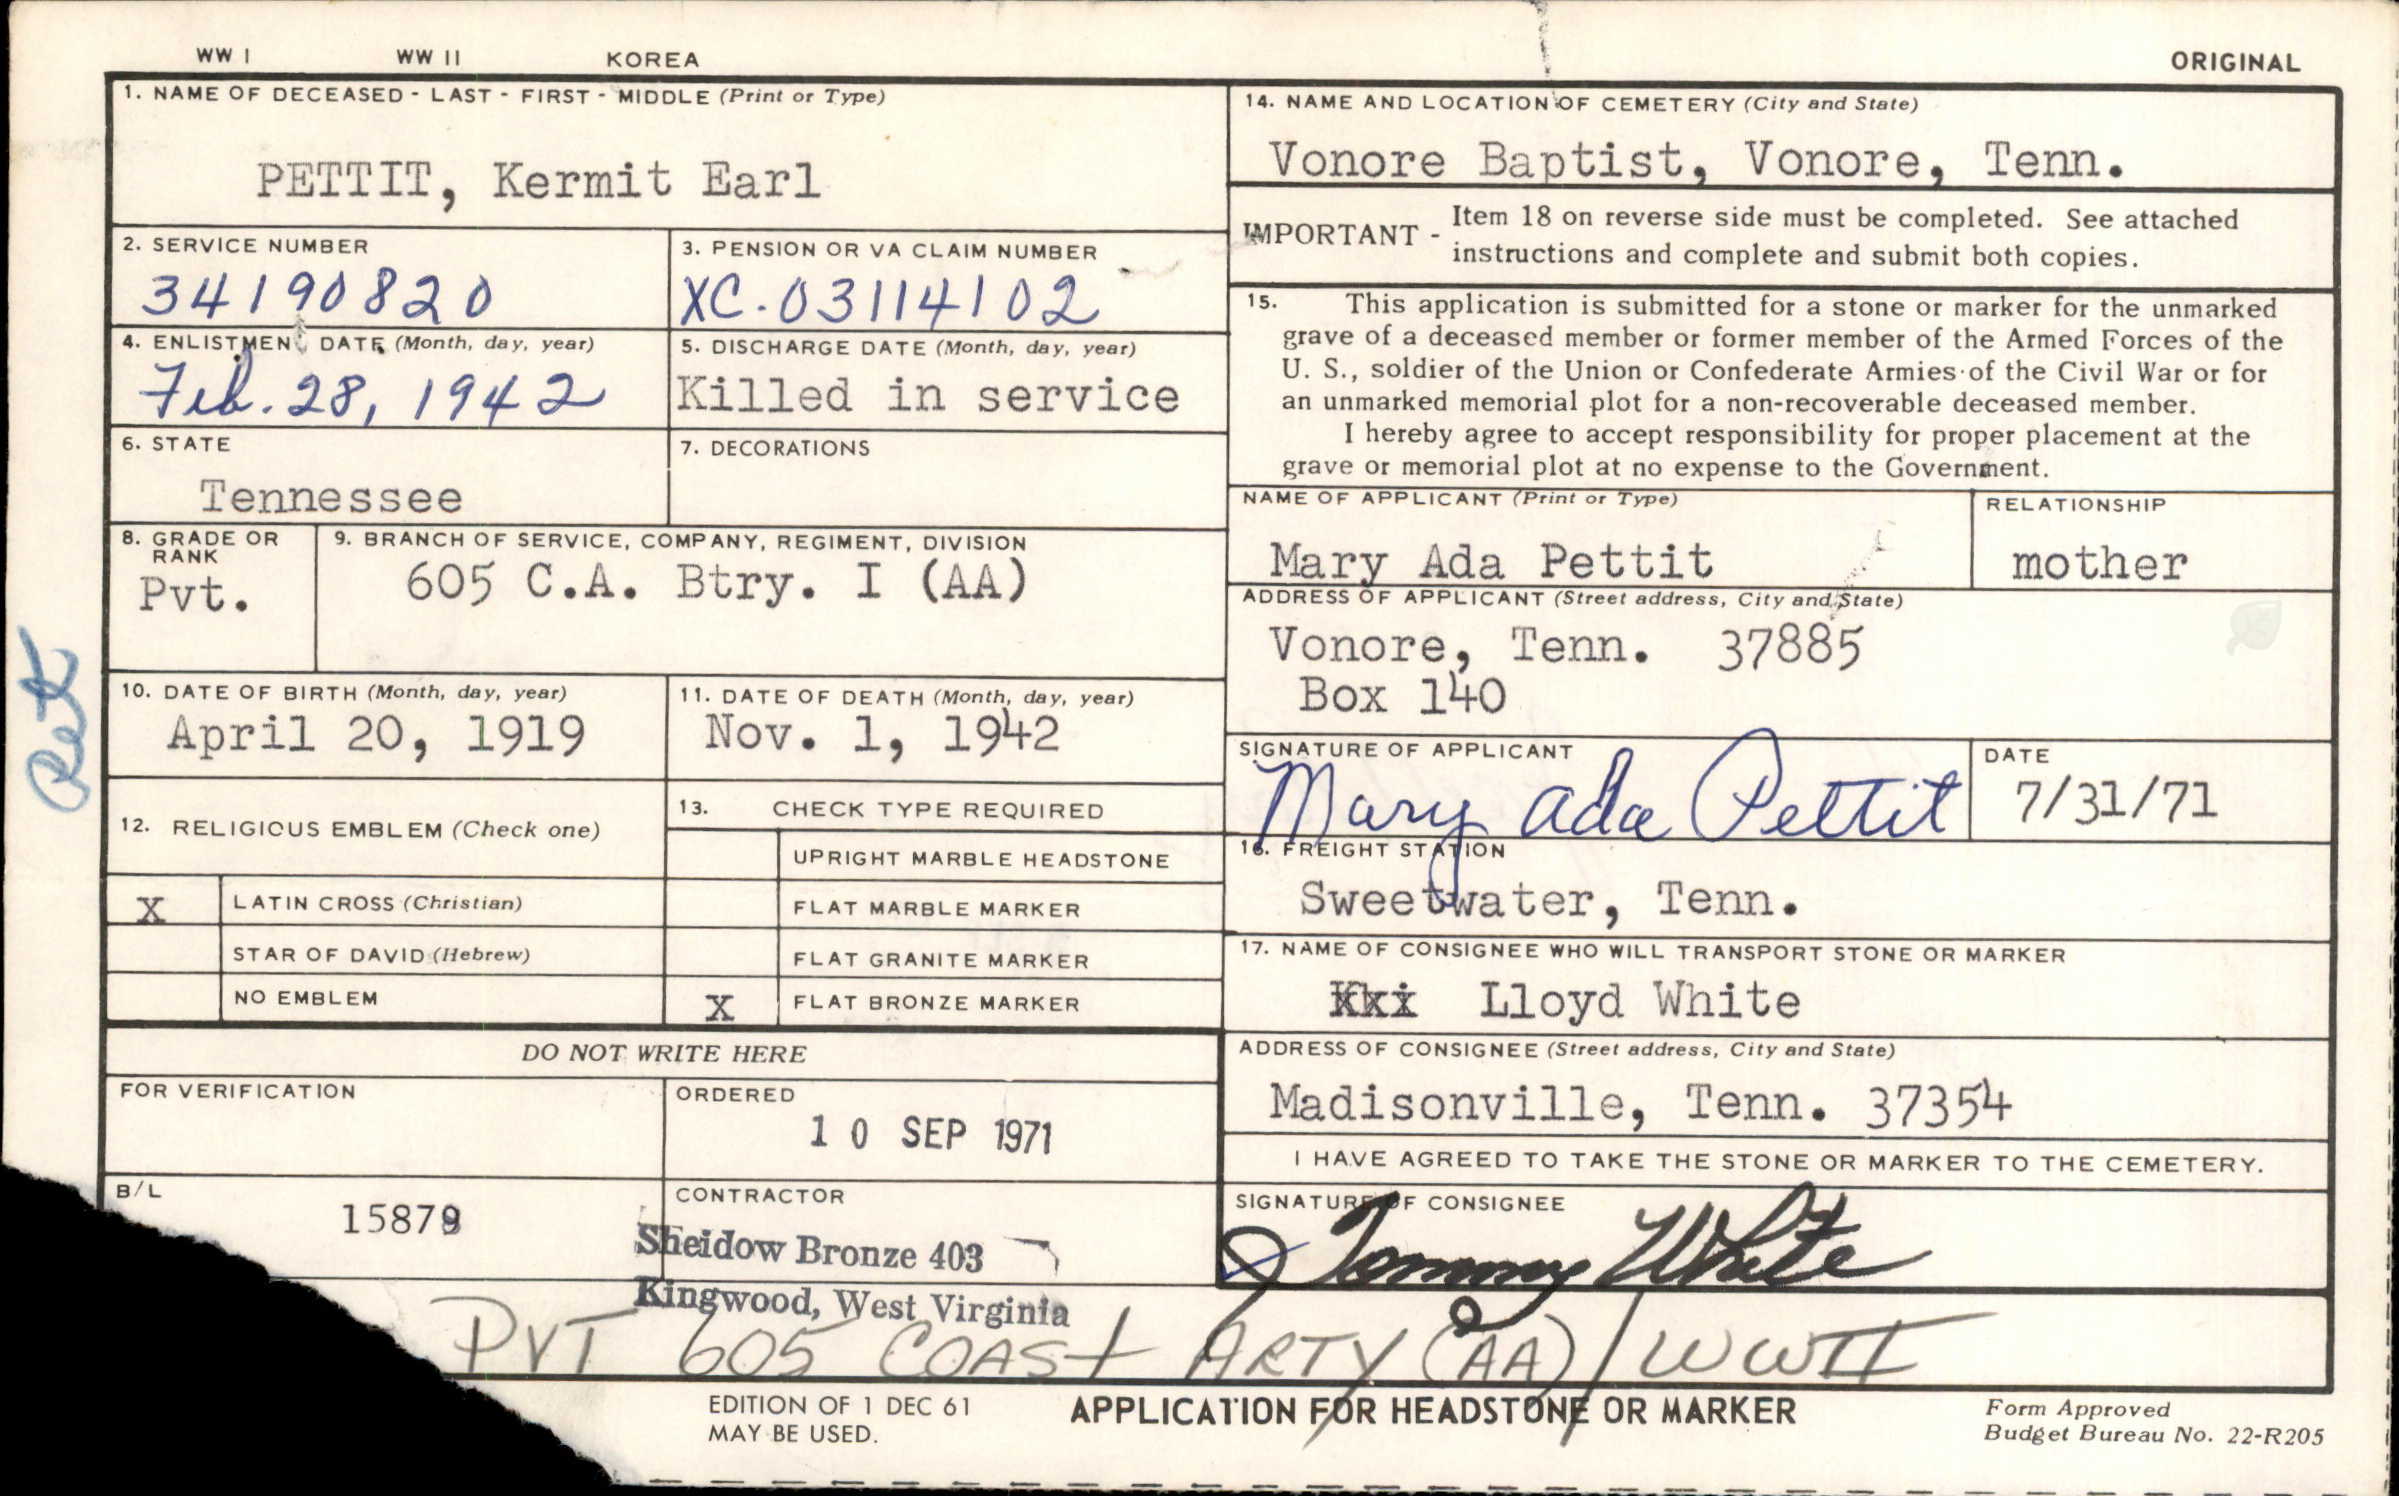 WW I WW II KOREA ORIGINAL
1. NAME OF DECEASED - LAST - FIRST - MIDDLE (Print or Type)
PETTIT, Kermit Earl
2. SERVICE NUMBER
34190820
3. PENSION OR VA CLAIM NUMBER
XC-03114102
4. ENLISTMENT DATE (Month, day, year)
Feb. 28, 1942
5. DISCHARGE DATE (Month, day, year)
Killed in service
6. STATE
Tennessee
7. DECORATIONS
8. GRADE OR
RANK
Pvt.
9. BRANCH OF SERVICE, COMPANY, REGIMENT, DIVISION
605 C.A. Btry. I (AA)
10. DATE OF BIRTH (Month, day, year)
April 20, 1919
11. DATE OF DEATH (Month, day, year)
Nov. 1, 1942
12. RELIGIOUS EMBLEM (Check one)
X LATIN CROSS (Christian)
STAR OF DAVID (Hebrew)
NO EMBLEM
13. CHECK TYPE REQUIRED
UPRIGHT MARBLE HEADSTONE
FLAT MARBLE MARKER
FLAT GRANITE MARKER
X FLAT BRONZE MARKER
DO NOT WRITE HERE
FOR VERIFICATION
ORDERED
10 SEP 1971
B/L
15879
CONTRACTOR
Sheidow Bronze 403
Kingwood, West Virginia
14. NAME AND LOCATION OF CEMETERY (City and State)
Vonore Baptist, Vonore, Tenn.
IMPORTANT - Item 18 on reverse side must be completed. See attached
instructions and complete and submit both copies.
15. This application is submitted for a stone or marker for the unmarked
grave of a deceased member or former member of the Armed Forces of the
U. S., soldier of the Union or Confederate Armies of the Civil War or for
an unmarked memorial plot for a non-recoverable deceased member.
I hereby agree to accept responsibility for proper placement at the
grave or memorial plot at no expense to the Government.
NAME OF APPLICANT (Print or Type)
Mary Ada Pettit
RELATIONSHIP
mother
ADDRESS OF APPLICANT (Street address, City and State)
Vonore, Tenn. 37885
Box 140
SIGNATURE OF APPLICANT
Mary Ada Pettit
DATE
7/31/71
16. FREIGHT STATION
Sweetwater, Tenn.
17. NAME OF CONSIGNEE WHO WILL TRANSPORT STONE OR MARKER
Lloyd White
ADDRESS OF CONSIGNEE (Street address, City and State)
Madisonville, Tenn. 37354
I HAVE AGREED TO TAKE THE STONE OR MARKER TO THE CEMETERY.
SIGNATURE OF CONSIGNEE
Tommy White
PVT 605 COAST ARTY (AA) / WWII
EDITION OF 1 DEC 61
MAY BE USED.
APPLICATION FOR HEADSTONE OR MARKER
Form Approved
Budget Bureau No. 22-R205